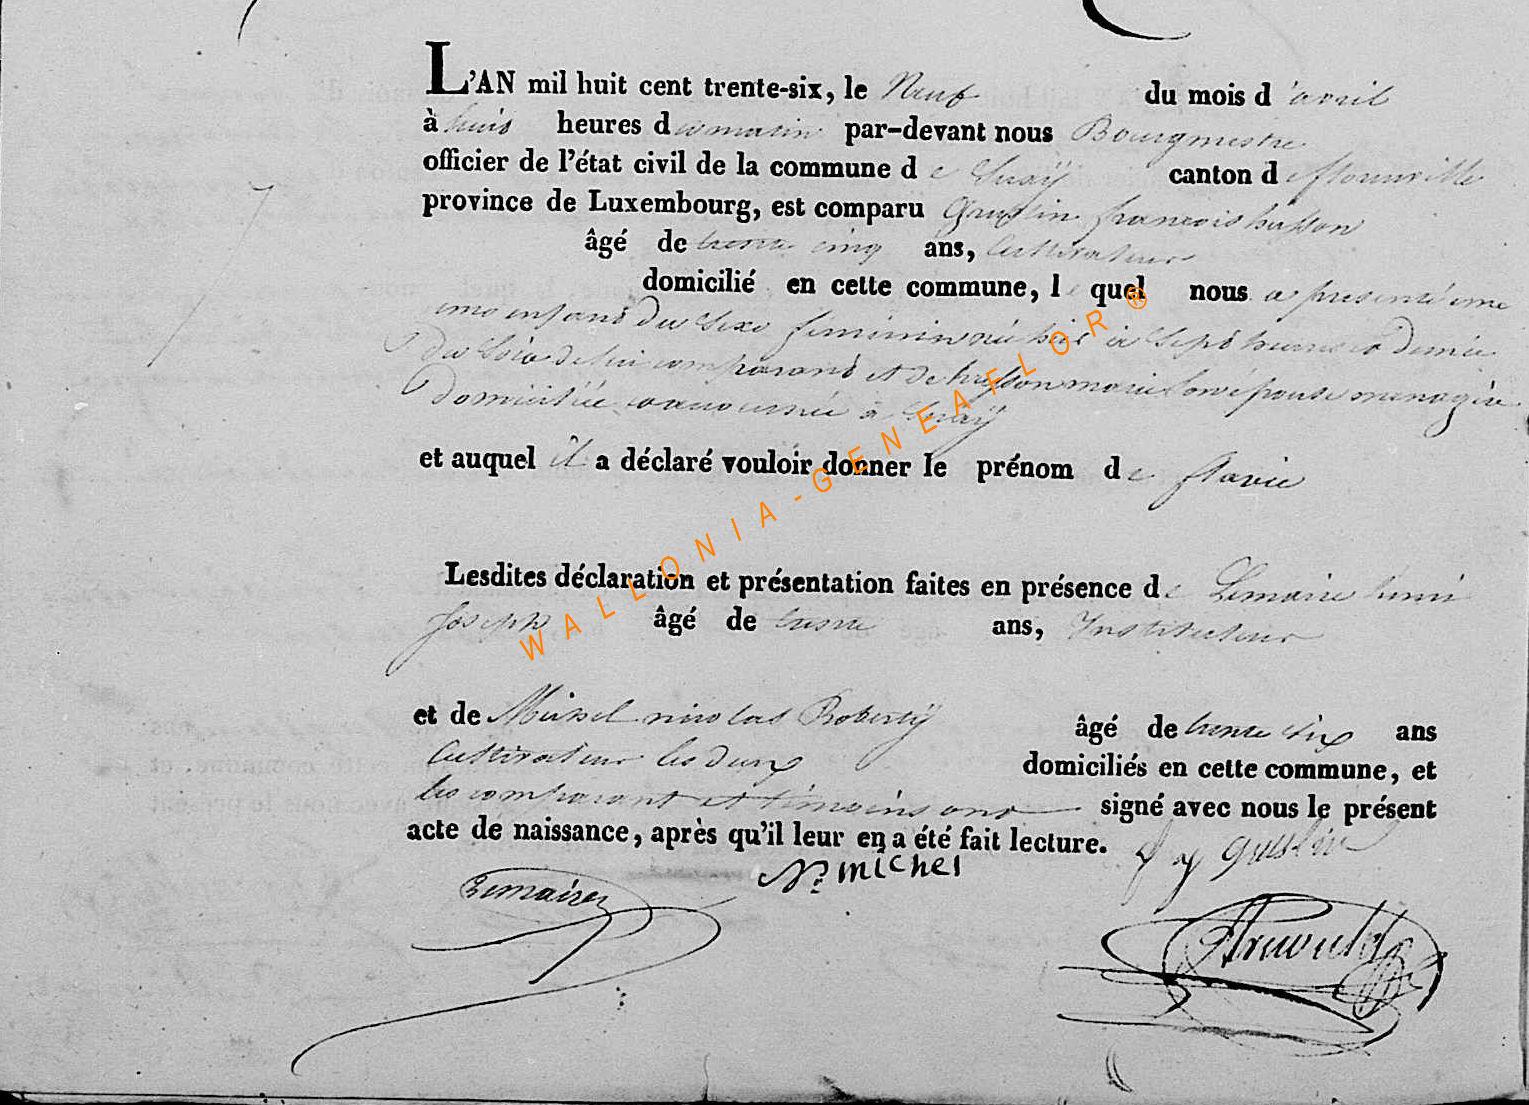 L'AN mil huit cent trente-six, le Neuf du mois d'avril
à huit heures du matin par-devant nous Bourgmestre
officier de l'état civil de la commune de canton de florenville
province de Luxembourg, est comparu françois husson
âgé de trente cinq ans, Cultivateur
domicilié en cette commune, lequel nous a presenté
enfant du sexe feminin né hier à Sept heures et demie
du Soir de lui comparant et de husson marie son épouse menagère
domiciliée à
et auquel il a déclaré vouloir donner le prénom de flavie
Lesdites déclaration et présentation faites en présence de Lemaire henri
Joseph âgé de trente ans, Instituteur
et de Michel nicolas âgé de trente six ans
Cultivateur les deux domiciliés en cette commune, et
les comparant et témoins ont signé avec nous le présent
acte de naissance, après qu'il leur en a été fait lecture.
Lemaire
N. michel
WALLONIA-GENEAFLOR®